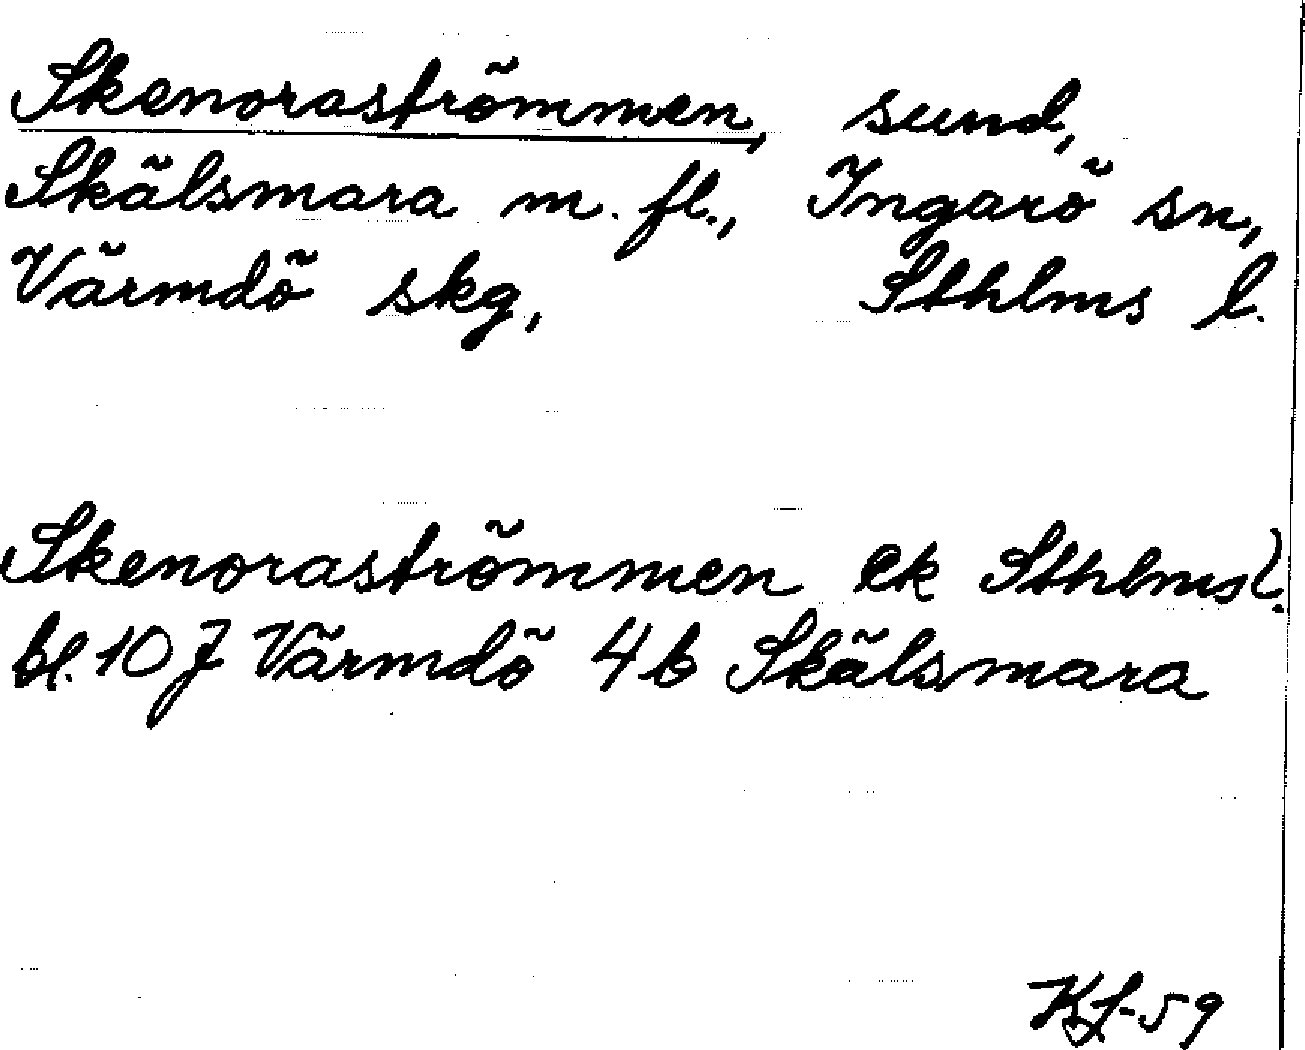 Skenoraströmmen, sund,
Skälsmara m. fl., Ingarö sn,
Värmdö skg, Sthlms l.
Skenoraströmmen ek Sthlms l.
bl. 10 J Värmdö 4b Skälsmara